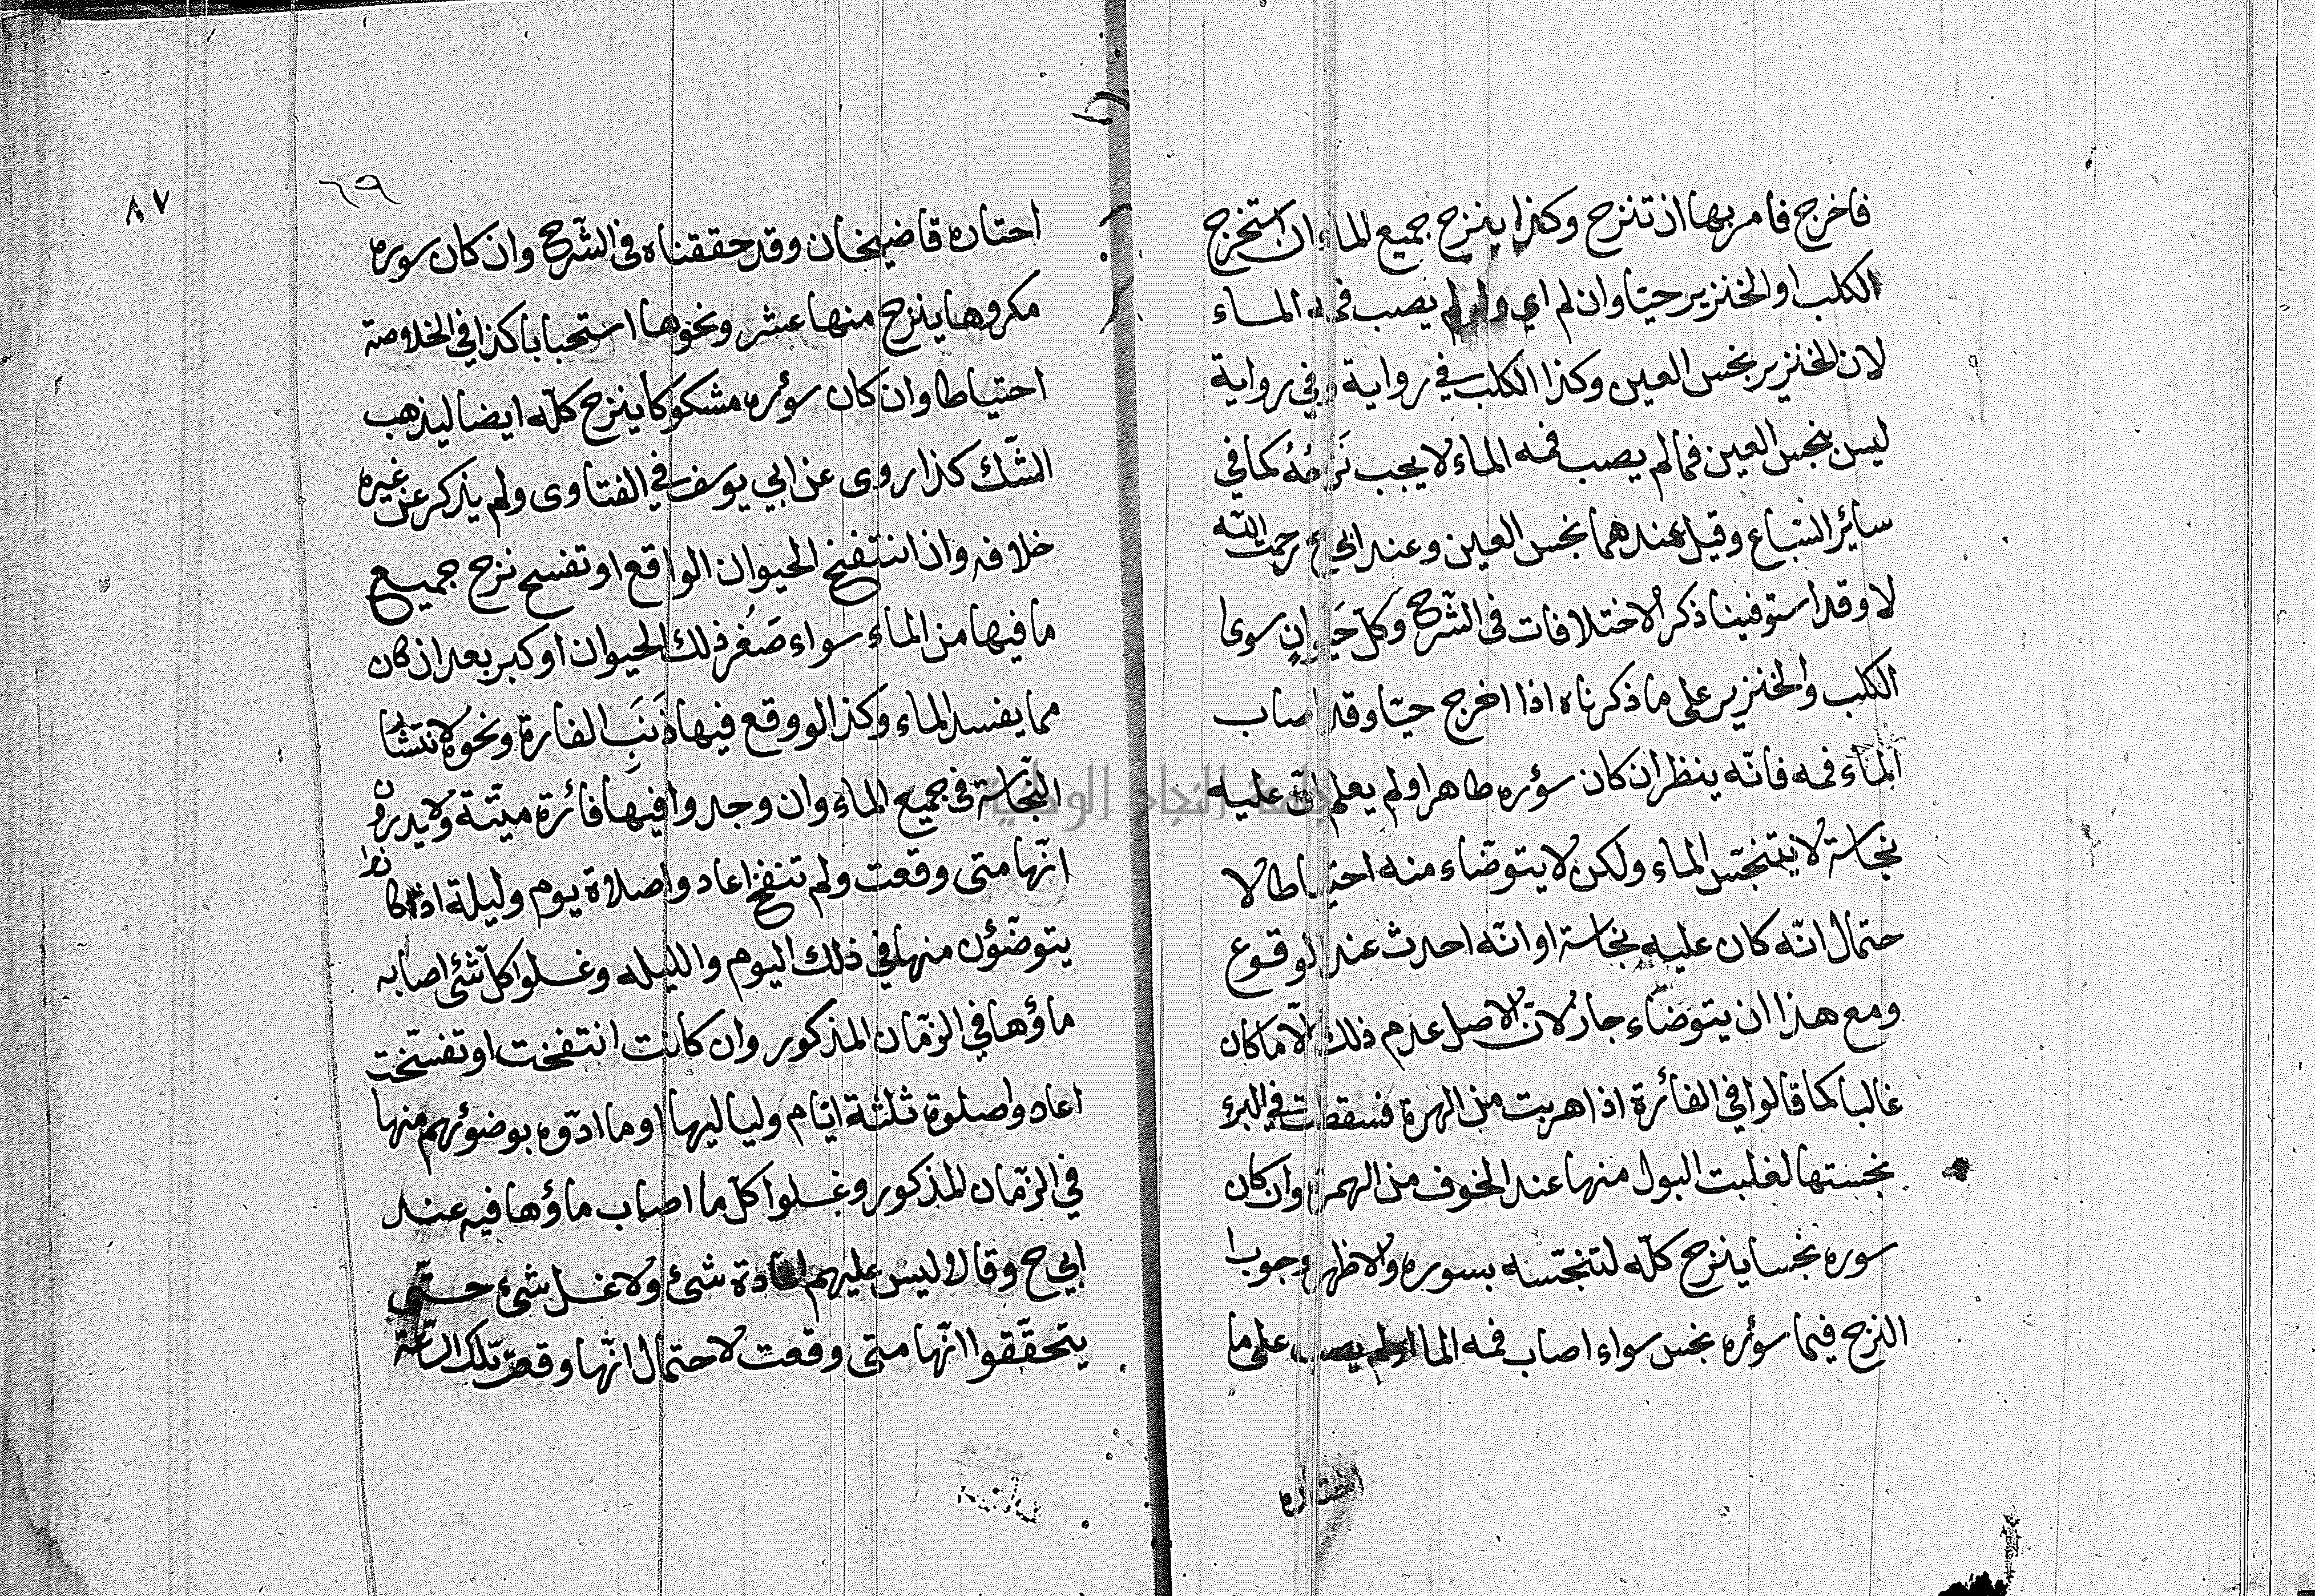 فاخرج فامر بها ان تنزح وكذا ينزح جميع الماء ان استخرج
الكلب او الخنزير حيّا وان لم اي ولو لم يصب فمه الماء
لان الخنزير نجس العين وكذا الكلب في رواية وفي رواية
ليس بنجس العين فما لم يصب فمه الماء لا يجب نَزْحُهُ كما في
سائر السّباع وقيل عندهما نجس العين وعند ابي ح رحمة الله
لا وقد استوفينا ذكر الاختلافات في الشّرح وكلّ حَيَوانٍ سوى
الكلب والخنزير على ما ذكرناه اذا اخرج حيّا وقد اصاب
الماء فمه فانّه ينظر ان كان سؤره طاهرا ولم يعلم انّ عليه
نجاسة لا يتنجّس الماء ولكن لا يتوضّاء منه احتياطا لا
حتمال انّه كان عليه نجاسة او انّه احدث عند الوقوع
ومع هذا ان يتوضّاء جاز لانّ الاصل عدم ذلك الّا ما كان
غالبا كما قالوا في الفأرة اذا هربت من الهرة فسقطت في البرء
نجستها لغلبت البول منها عند الخوف من الهمرة وان كان
سوره نجسا ينزح كلّه لتنجّسه بسوره والاظهر وجوب
النزح فيما سؤره نجس سواء اصاب فمه الما اولم يصب على ما
اختاره
٦٩
٨٧
احتاره قاضيخان وقد حققناه في الشّرح وان كان سوره
مكروها ينزح منها عشر ونحوها استحبابا كذا في الخلاصة
احتياطا وان كان سؤره مشكوكا ينزح كلّه ايضا ليذهب
الشّك كذا روى عن ابي يوسف في الفتاوى ولم يذكر عن غيره
خلافه وان انتفخ الحيوان الواقع او تفسخ نزح جميع
ما فيها من الماء سواء صَغُر ذلك الحيوان او كبر بعد ان كان
مما يفسد الماء وكذا لو وقع فيها ذَنَبَ الفارة ونحوه لانتشار
النّجاسة في جميع الماء وان وجدوا فيها فائرة ميّتة ولا يدرون
انّها متى وقعت ولم تنفخ اعادوا صلاة يوم وليلة اذا كانوا
يتوضّؤن منها في ذلك اليوم والليله وغسلوا كلّ شئ اصابه
ماؤها في الزّمان المذكور وان كانت انتفخت او تفسّخت
اعادوا صلوة ثلثة ايّام ولياليها وما ادّوه بوضوئهم منها
في الزّمان المذكور وغسلوا كلّ ما اصاب ماؤها فيه عند
ابي ح وقالا وليس عليهم اعادة شئ ولا غسل شئ حتّى
يتحقّقوا انّها متى وقعت لاحتمال انّها وقعت تلك السّاعة
جامعة النجاح الوطنية